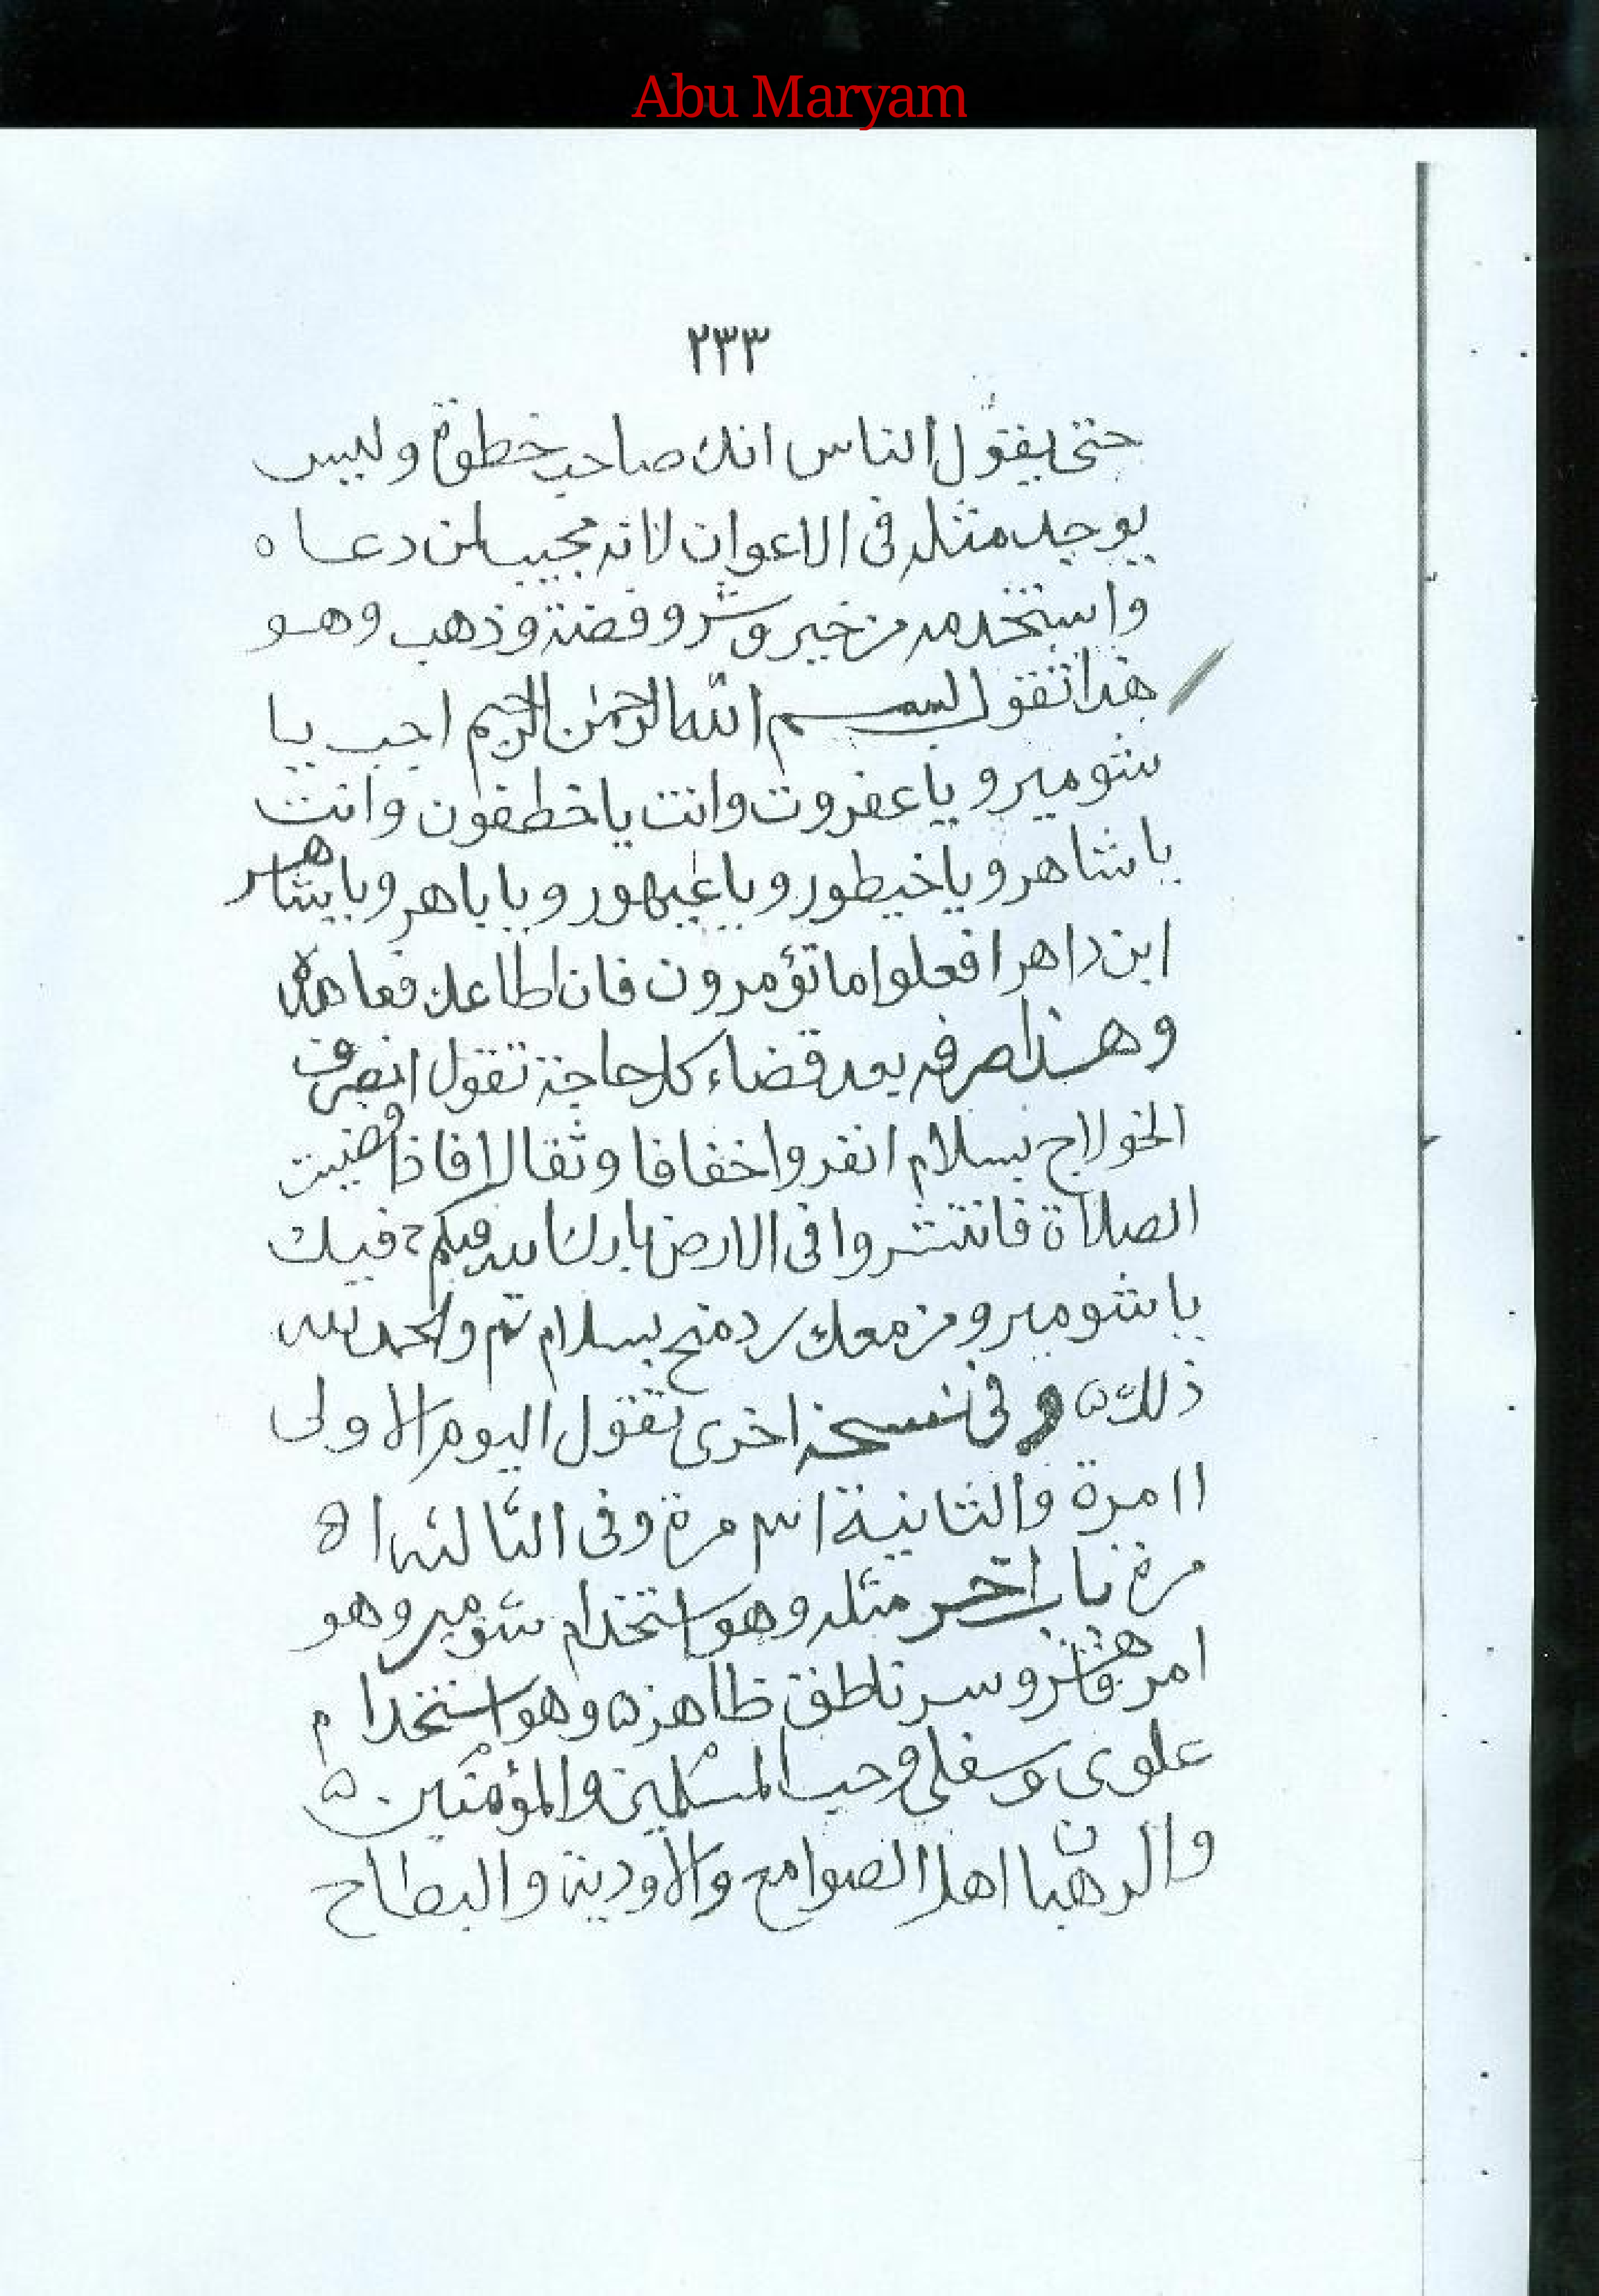 Abu Maryam
٢٣٣
حتى يقول الناس انك صاحب خطوة وليس
يوجد مثله فى الاعوان لانه مجيب لمن دعاه
واستخدمه من خير وشر وفضة وذهب وهو
هذا تقول بسم الله الرحمن الرحيم اجب يا
شومير ويا عفروت وانت يا خطفون وانت
يا شاهر ويا خيطور ويا غيهور ويا باهر ويا
ابن داهر افعلوا ما تؤمرون فان اطاعك فعاهده
وهذا صرفه بعد قضاء كل حاجة تقول انصرف
بسلام انفروا خفافا وثقالا فاذا قضيت
الصلاة فانتشروا فى الارض بارك الله فيكم وفيك
يا شومير ومن معك بسلام تم والحمد لله
ذلك وفى نسخة اخرى تقول اليوم الاولى
١١ مرة والثانية مرة وفى الثالثه ١٥
مرة باب اخر مثله وهو استخدام شومير وهو
امر وسر ناطق ظاهر وهو استخدام
علوى وسفلى وحب المسلمين والمؤمنين
والرهبان اهل الصوامع والاودية والبطاح